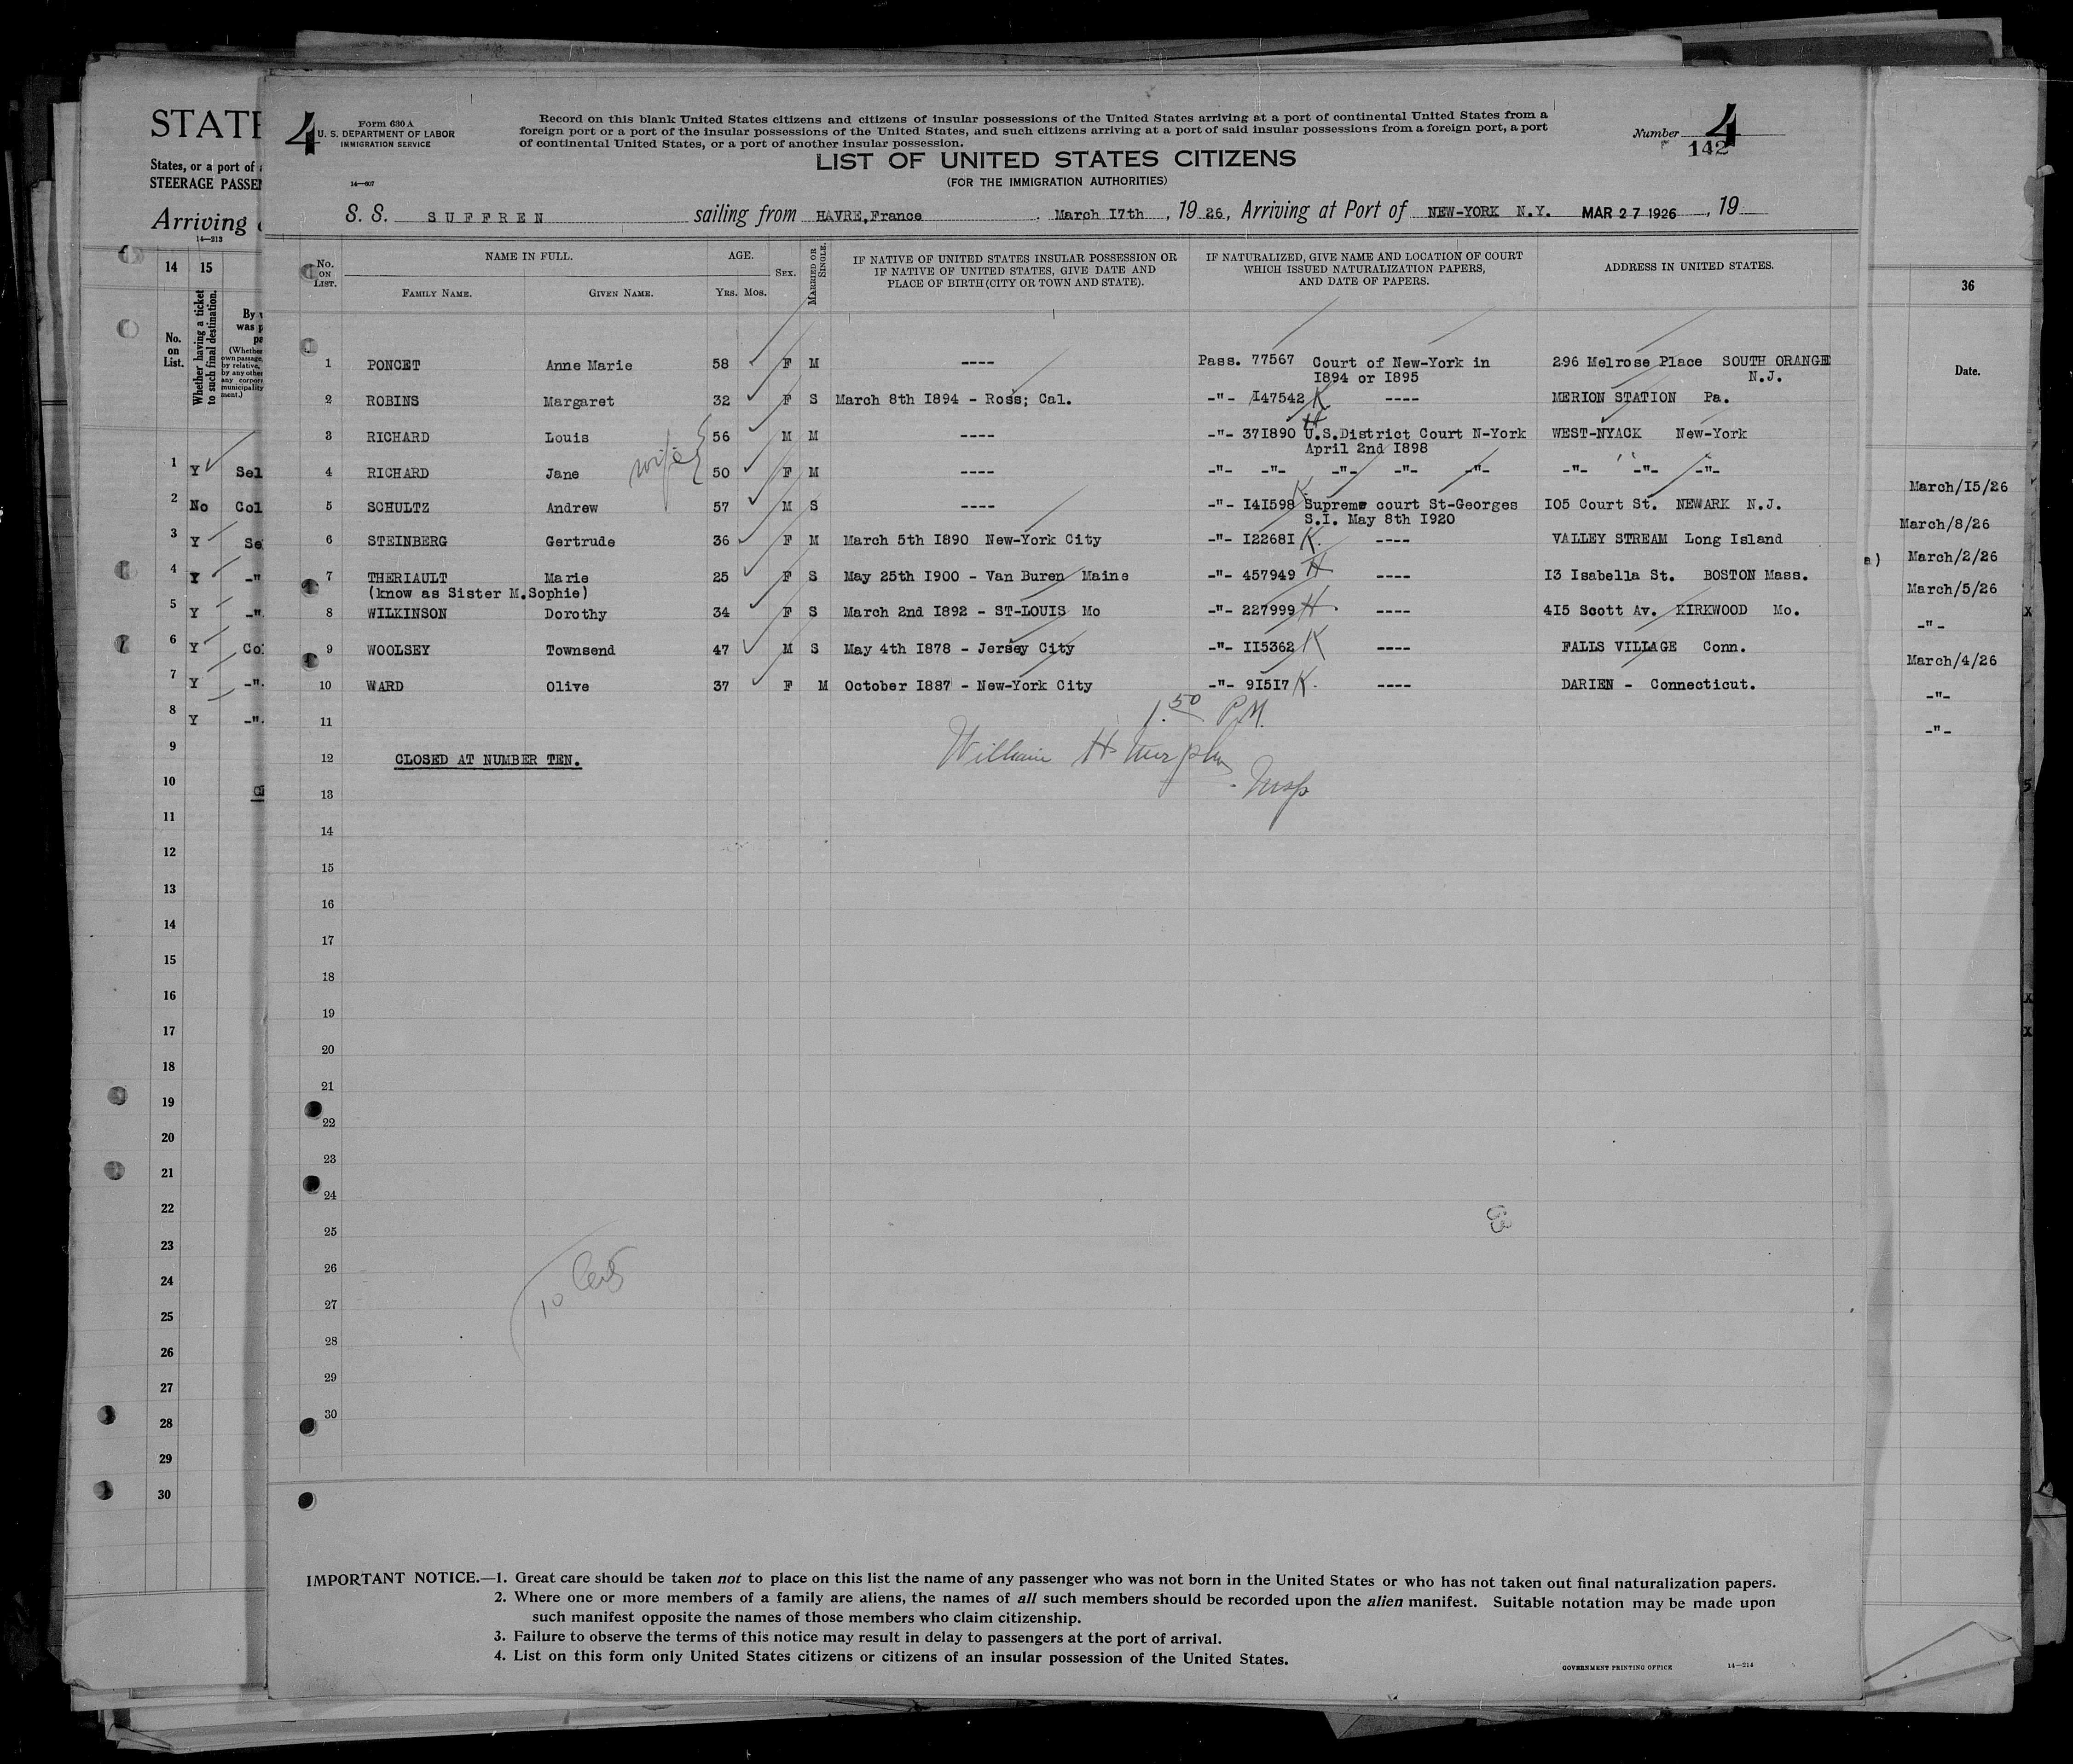 STATE
States, or a port of
STEERAGE PASSEN
Arriving
14—213
14 15
No. on List.
Whether having a ticket to such final destination.
By
was p
(Whether
own passage,
by relative,
by any other
any corpor
municipality
ment.)
1 Y Sel
2 No Col
3 Y Se
4 Y -"
5 Y -"-
6 Y Col
7 Y -"-
8 Y -"-
9
10
11
12
13
14
15
16
17
18
19
20
21
22
23
24
25
26
27
28
29
30
4
Form 630 A
U. S. DEPARTMENT OF LABOR
IMMIGRATION SERVICE
14—607
Record on this blank United States citizens and citizens of insular possessions of the United States arriving at a port of continental United States from a
foreign port or a port of the insular possessions of the United States, and such citizens arriving at a port of said insular possessions from a foreign port, a port
of continental United States, or a port of another insular possession.
Number 4
142
LIST OF UNITED STATES CITIZENS
(FOR THE IMMIGRATION AUTHORITIES)
S. S. SUFFREN sailing from HAVRE,France March I7th, 1926, Arriving at Port of NEW-YORK N.Y. MAR 27 1926, 19
No. ON LIST.
NAME IN FULL.
FAMILY NAME. GIVEN NAME.
AGE.
YRS. MOS.
SEX.
MARRIED OR SINGLE.
IF NATIVE OF UNITED STATES INSULAR POSSESSION OR
IF NATIVE OF UNITED STATES, GIVE DATE AND
PLACE OF BIRTH (CITY OR TOWN AND STATE).
IF NATURALIZED, GIVE NAME AND LOCATION OF COURT
WHICH ISSUED NATURALIZATION PAPERS,
AND DATE OF PAPERS.
ADDRESS IN UNITED STATES.
1 PONCET Anne Marie 58 F M ---- Pass. 77567 Court of New-York in 296 Melrose Place SOUTH ORANGE
I894 or I895 N.J.
2 ROBINS Margaret 32 F S March 8th I894 - Ross; Cal. -"- I47542 K ---- MERION STATION Pa.
3 RICHARD Louis 56 M M ---- -"- 37I890 H U.S.District Court N-York WEST-NYACK New-York
April 2nd I898
wife
4 RICHARD Jane 50 F M ---- -"- -"- -"- -"- -"- -"- -"- -"-
5 SCHULTZ Andrew 57 M S ---- -"- I4I598 K Supreme court St-Georges I05 Court St. NEWARK N.J.
S.I. May 8th I920
6 STEINBERG Gertrude 36 F M March 5th I890 New-York City -"- I2268I K. ---- VALLEY STREAM Long Island
7 THERIAULT Marie 25 F S May 25th I900 - Van Buren Maine -"- 457949 H ---- I3 Isabella St. BOSTON Mass.
(know as Sister M.Sophie)
8 WILKINSON Dorothy 34 F S March 2nd I892 - ST-LOUIS Mo -"- 227999 H. ---- 4I5 Scott Av. KIRKWOOD Mo.
9 WOOLSEY Townsend 47 M S May 4th I878 - Jersey City -"- II5362 K ---- FALLS VILLAGE Conn.
10 WARD Olive 37 F M October I887 - New-York City -"- 9I5I7 K. ---- DARIEN - Connecticut.
11
1.50 P.M.
12 CLOSED AT NUMBER TEN.
William H Murphy
Insp
13
14
15
16
17
18
19
20
21
22
23
24
25
26
27
28
29
30
63
10
IMPORTANT NOTICE.—1. Great care should be taken not to place on this list the name of any passenger who was not born in the United States or who has not taken out final naturalization papers.
2. Where one or more members of a family are aliens, the names of all such members should be recorded upon the alien manifest. Suitable notation may be made upon
such manifest opposite the names of those members who claim citizenship.
3. Failure to observe the terms of this notice may result in delay to passengers at the port of arrival.
4. List on this form only United States citizens or citizens of an insular possession of the United States.
GOVERNMENT PRINTING OFFICE 14—214
36
Date.
March/I5/26
March/8/26
March/2/26
March/5/26
-"-
March/4/26
-"-
-"-